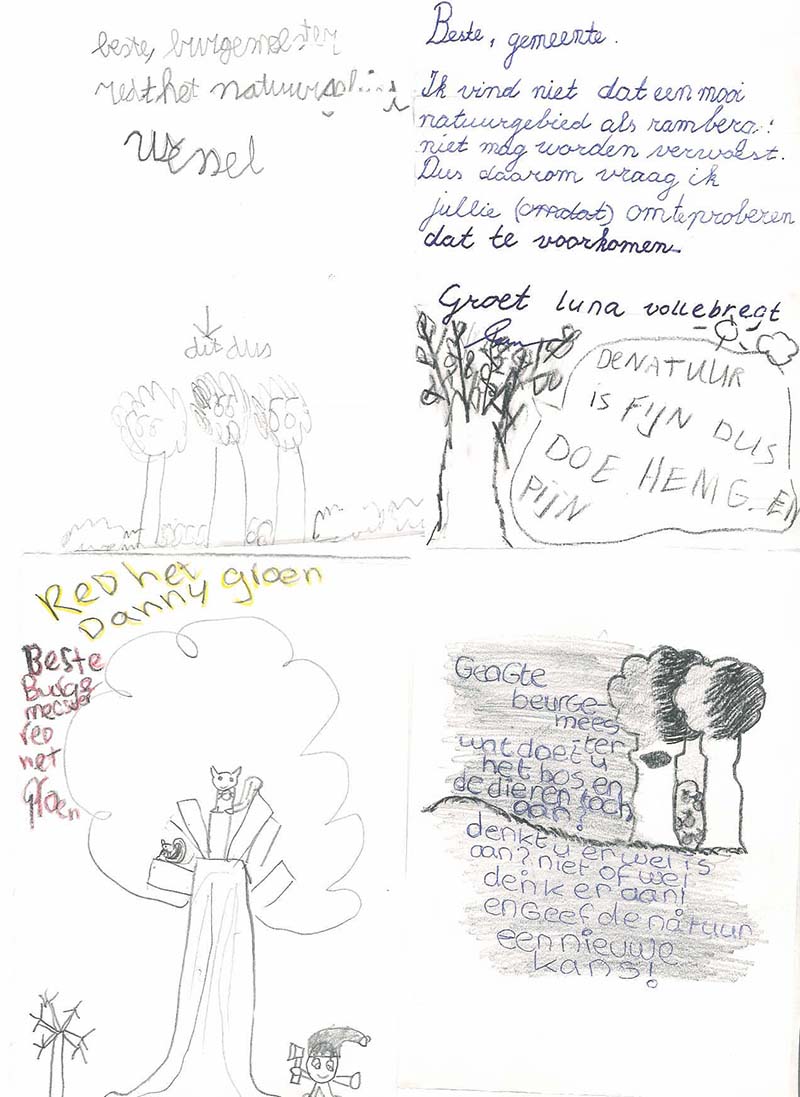 beste, burgemeester
redt het natuurgebied
Wessel
dit dus
Beste, gemeente.
Ik vind niet dat een mooi
natuurgebied als ramberg:
niet mag worden verwoest.
Dus daarom vraag ik
jullie (omdat) om te proberen
dat te voorkomen.
Groet luna vollebregt
DE NATUUR
is FIJN DUS
DOE HEM G EN
PIJN
Red het
Danny groen
Beste
Burge
meester
red
het
Groen
GeaGte
beurge-
mees
ter
wat doet u
het bos en
de dieren toch
aan?
denkt u er wel is
aan? niet of wel
denk er aan!
en Geef de natuur
een nieuwe
kans!